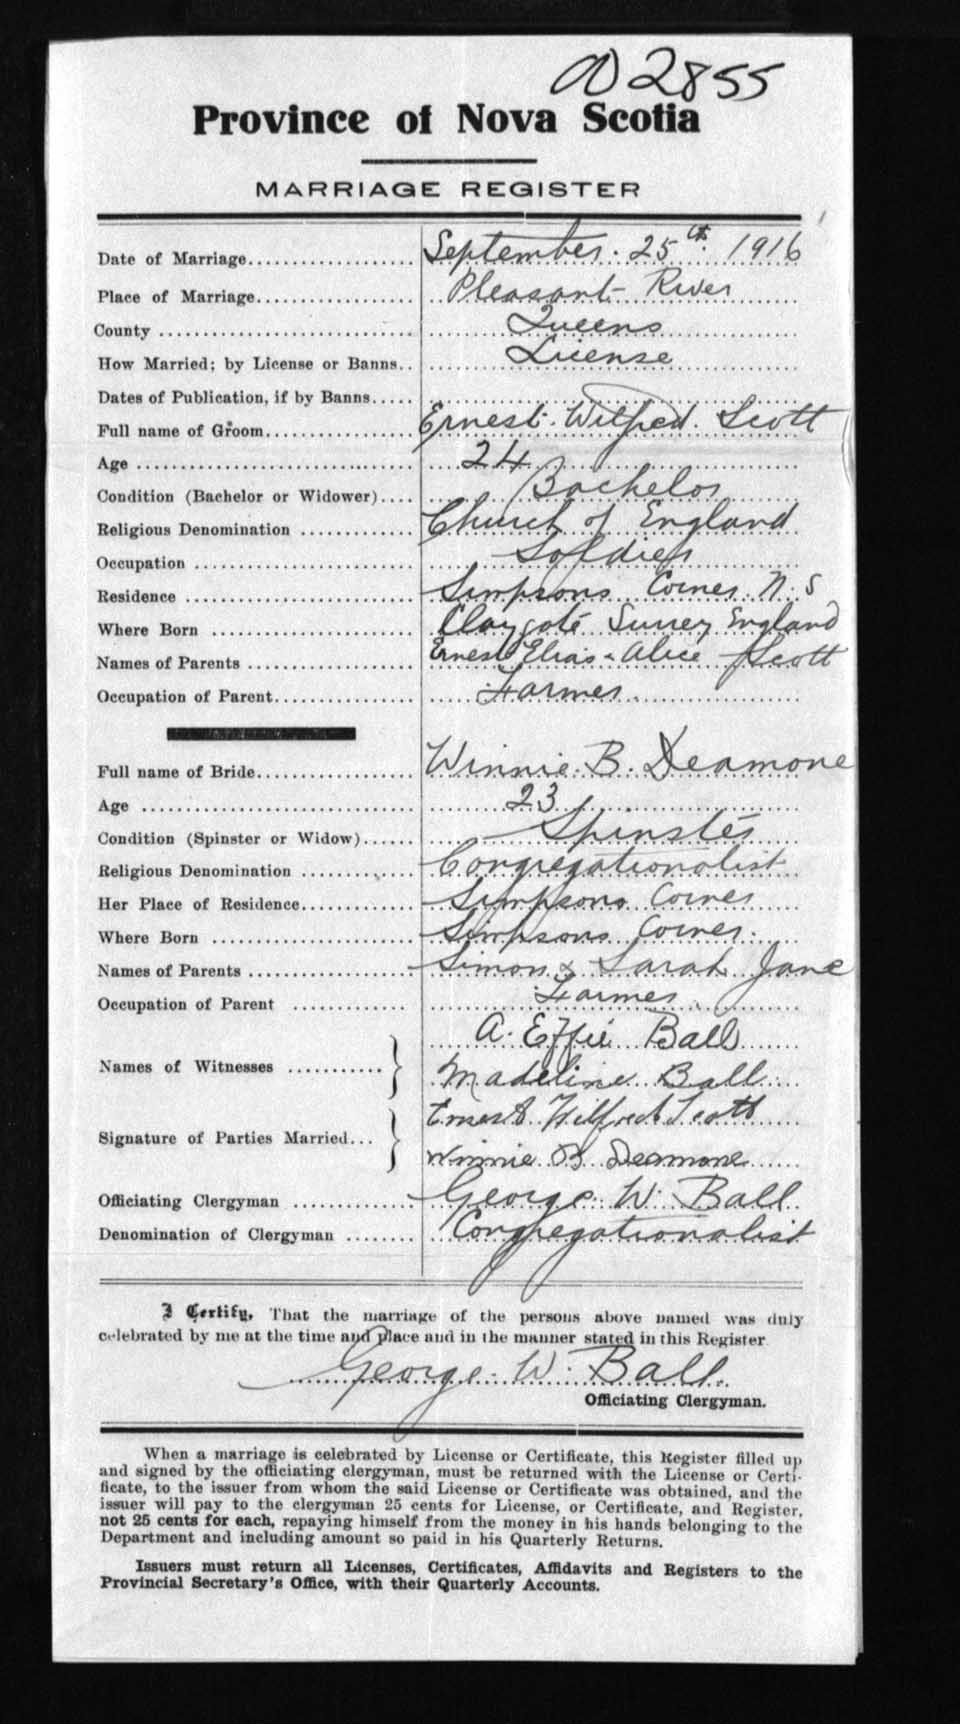 002855
Province of Nova Scotia
MARRIAGE REGISTER
Date of Marriage.................. September 25th 1916
Place of Marriage.................. Pleasant River
County .................. Queens
How Married; by License or Banns.. License
Dates of Publication, if by Banns.....
Full name of Groom.................. Ernest Wilfred Scott
Age .................. 24
Condition (Bachelor or Widower).... Bachelor
Religious Denomination ............ Church of England
Occupation .................. Soldier
Residence .................. Simpsons Corner N.S
Where Born .................. Claygate Surrey England
Names of Parents .................. Ernest Elias & Alice Scott
Occupation of Parent.................. Farmer
Full name of Bride.................. Winnie B. Deamone
Age .................. 23
Condition (Spinster or Widow)...... Spinster
Religious Denomination ............ Congregationalist
Her Place of Residence............ Simpsons Corner
Where Born .................. Simpsons Corner.
Names of Parents .................. Simon & Sarah Jane
Occupation of Parent ............ Farmer
A. Effie Ball
Names of Witnesses ...........
Madeline Ball
Ernest Wilfred Scott
Signature of Parties Married...
Winnie B Deamone
Officiating Clergyman ............ George W. Ball
Denomination of Clergyman ........ Congregationalist
I Certify, That the marriage of the persons above named was duly
celebrated by me at the time and place and in the manner stated in this Register
George W. Ball.
Officiating Clergyman.
When a marriage is celebrated by License or Certificate, this Register filled up
and signed by the officiating clergyman, must be returned with the License or Certi-
ficate, to the issuer from whom the said License or Certificate was obtained, and the
issuer will pay to the clergyman 25 cents for License, or Certificate, and Register,
not 25 cents for each, repaying himself from the money in his hands belonging to the
Department and including amount so paid in his Quarterly Returns.
Issuers must return all Licenses, Certificates, Affidavits and Registers to the
Provincial Secretary's Office, with their Quarterly Accounts.